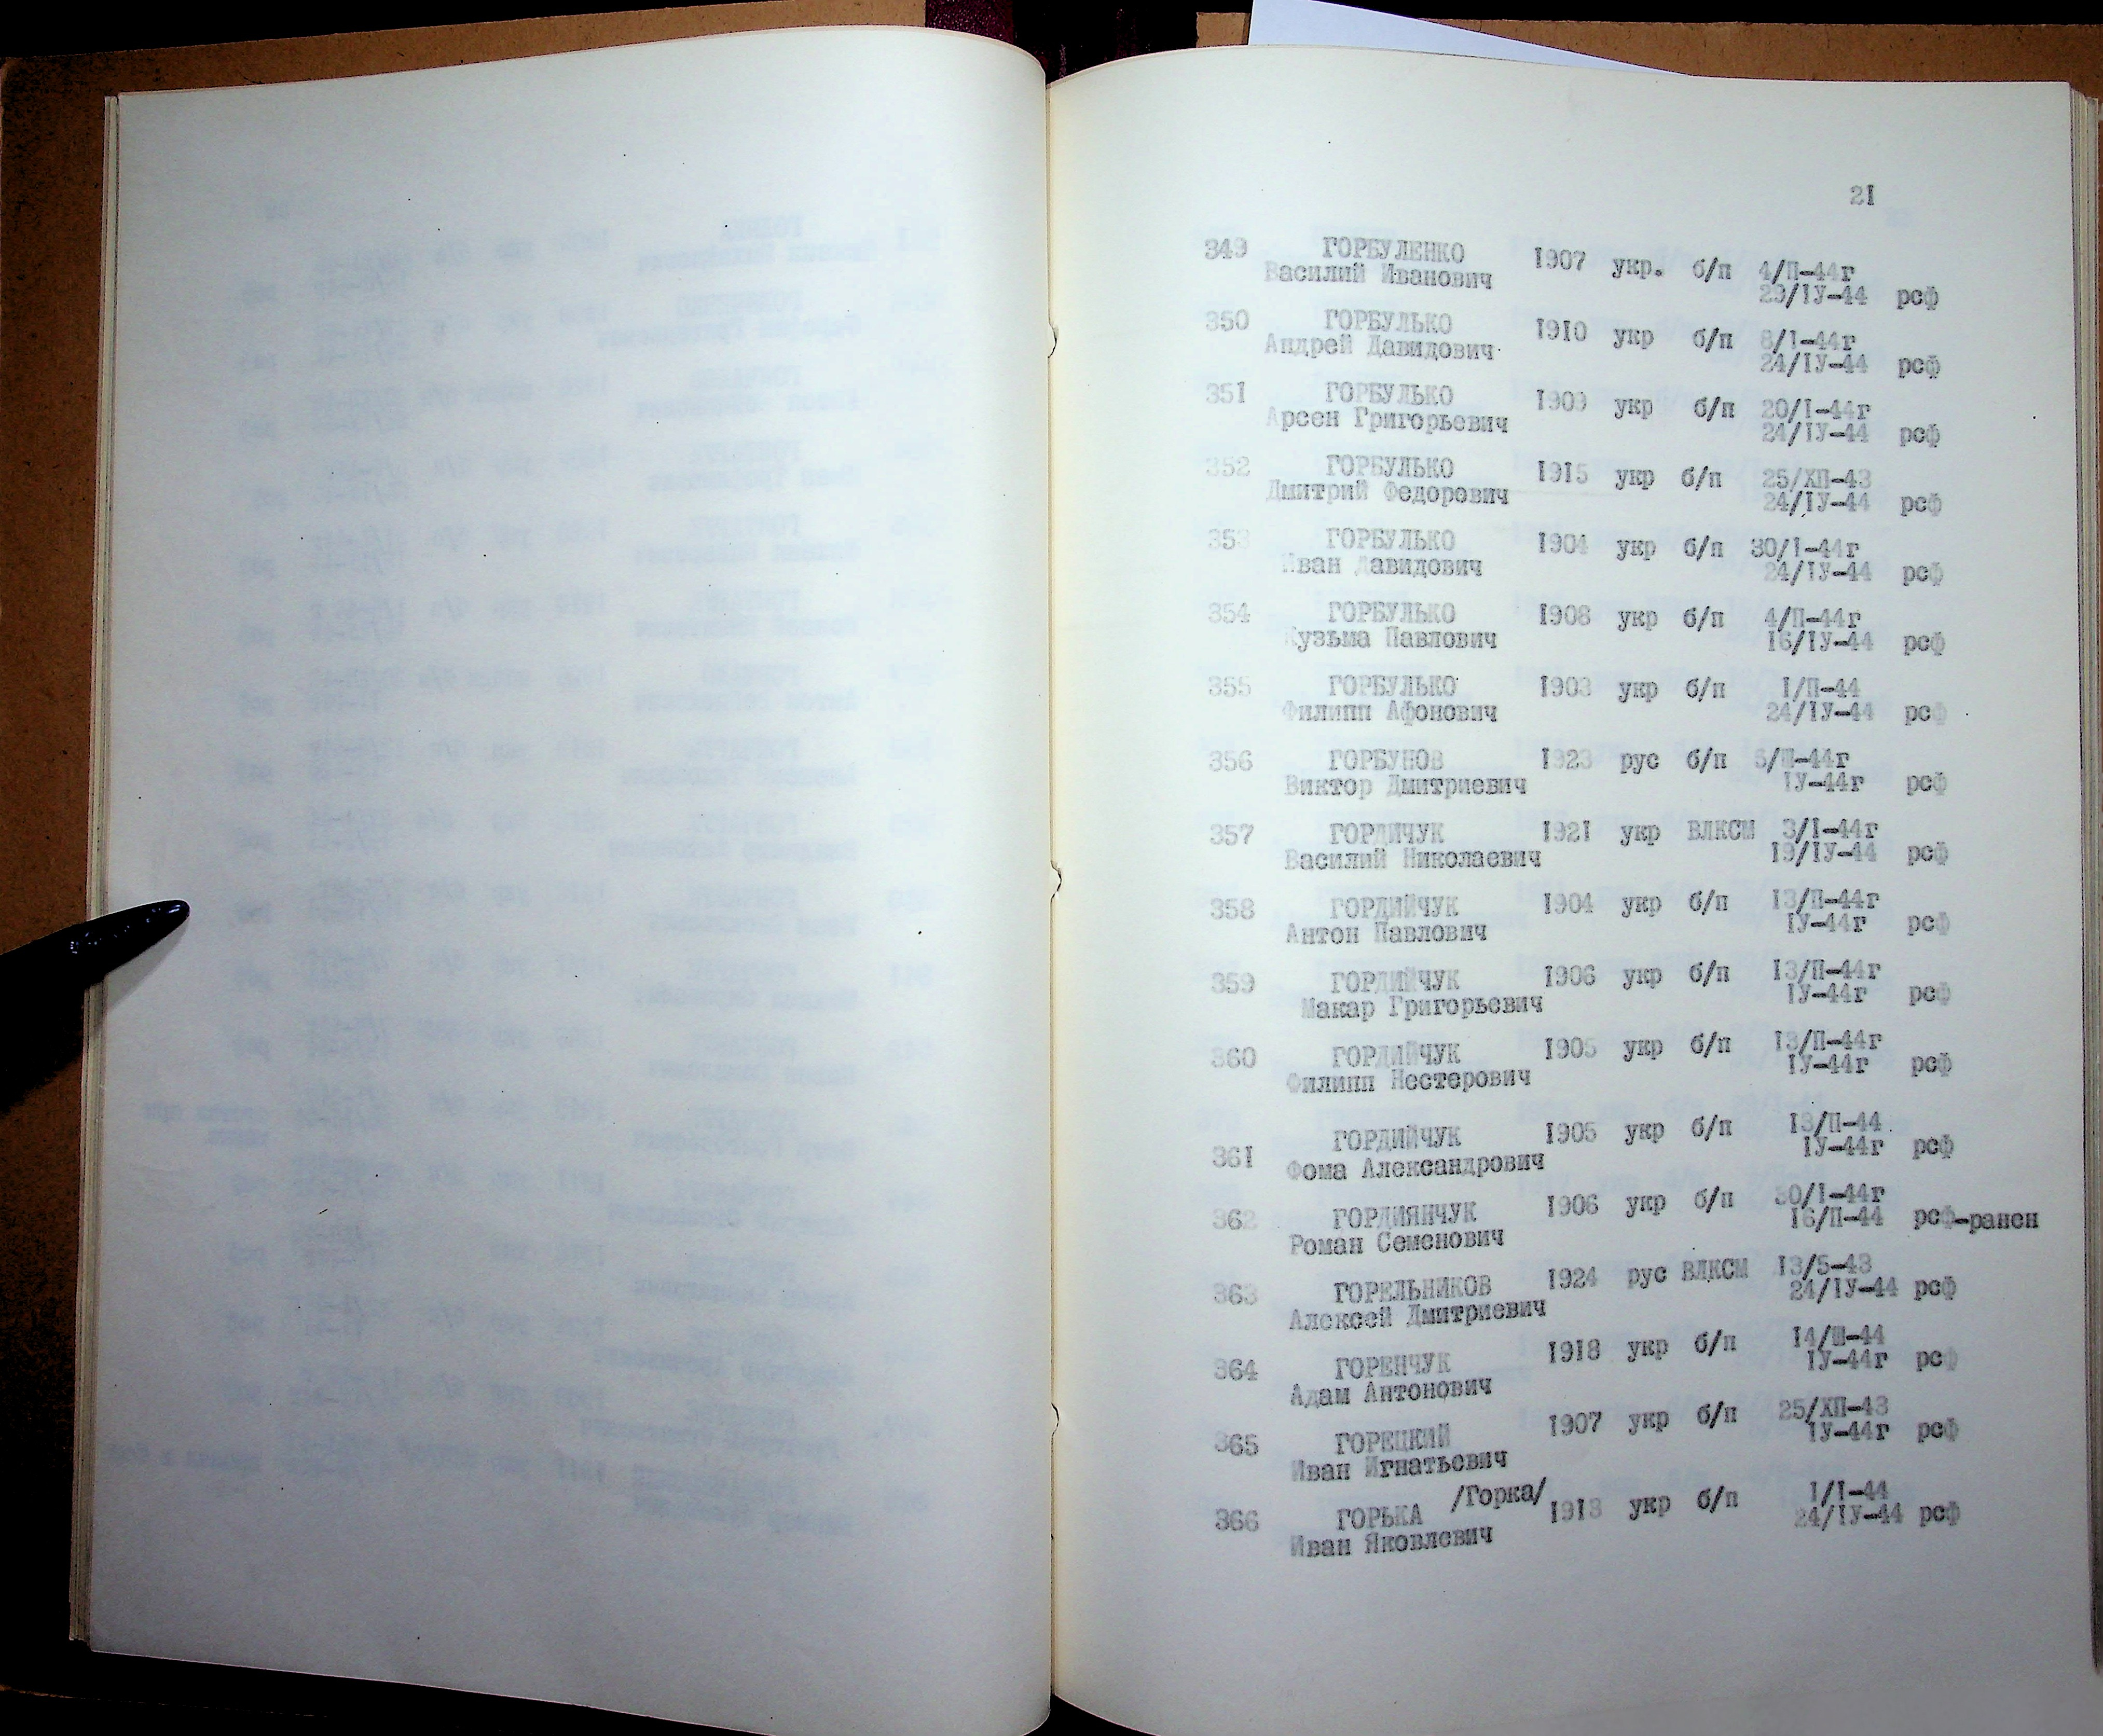 21
349 ГОРБУЛЕНКО 1907 укр. б/п 4/П-44г
Василий Иванович 29/IУ-44 рсф
350 ГОРБУЛЬКО 1910 укр б/п 8/I-44г
Андрей Давидович 24/IУ-44 рсф
351 ГОРБУЛЬКО 1909 укр б/п 20/I-44г
Арсен Григорьевич 24/IУ-44 рсф
352 ГОРБУЛЬКО 1915 укр б/п 25/ХП-43
Дмитрий Федорович 24/IУ-44 рсф
353 ГОРБУЛЬКО 1904 укр б/п 30/I-44г
Иван Давидович 24/IУ-44 рсф
354 ГОРБУЛЬКО 1908 укр б/п 4/П-44г
Кузьма Павлович 16/IУ-44 рсф
355 ГОРБУЛЬКО 1903 укр б/п I/П-44
Филипп Афонович 24/IУ-44 рсф
356 ГОРБУНОВ 1923 рус б/п 5/Ш-44г
Виктор Дмитриевич IУ-44г рсф
357 ГОРДИЧУК 1921 укр ВЛКСМ 3/I-44г
Василий Николаевич 19/IУ-44 рсф
358 ГОРДИЙЧУК 1904 укр б/п 13/П-44г
Антон Павлович IУ-44г рсф
359 ГОРДИЙЧУК 1906 укр б/п 13/П-44г
Макар Григорьевич IУ-44г рсф
360 ГОРДИЙЧУК 1905 укр б/п 13/П-44г
Филипп Нестерович IУ-44г рсф
361 ГОРДИЙЧУК 1905 укр б/п 13/П-44
Фома Александрович IУ-44г рсф
362 ГОРДИЯНЧУК 1906 укр б/п 30/I-44г
Роман Семенович 16/П-44 рсф-ранен
363 ГОРЕЛЬНИКОВ 1924 рус ВЛКСМ 13/5-43
Алексей Дмитриевич 24/IУ-44 рсф
364 ГОРЕНЧУК 1918 укр б/п 14/Ш-44
Адам Антонович IУ-44г рсф
365 ГОРЕЦКИЙ 1907 укр б/п 25/ХП-43
Иван Игнатьевич IУ-44г рсф
366 ГОРЬКА /Горка/ 1913 укр б/п I/I-44
Иван Яковлевич 24/IУ-44 рсф